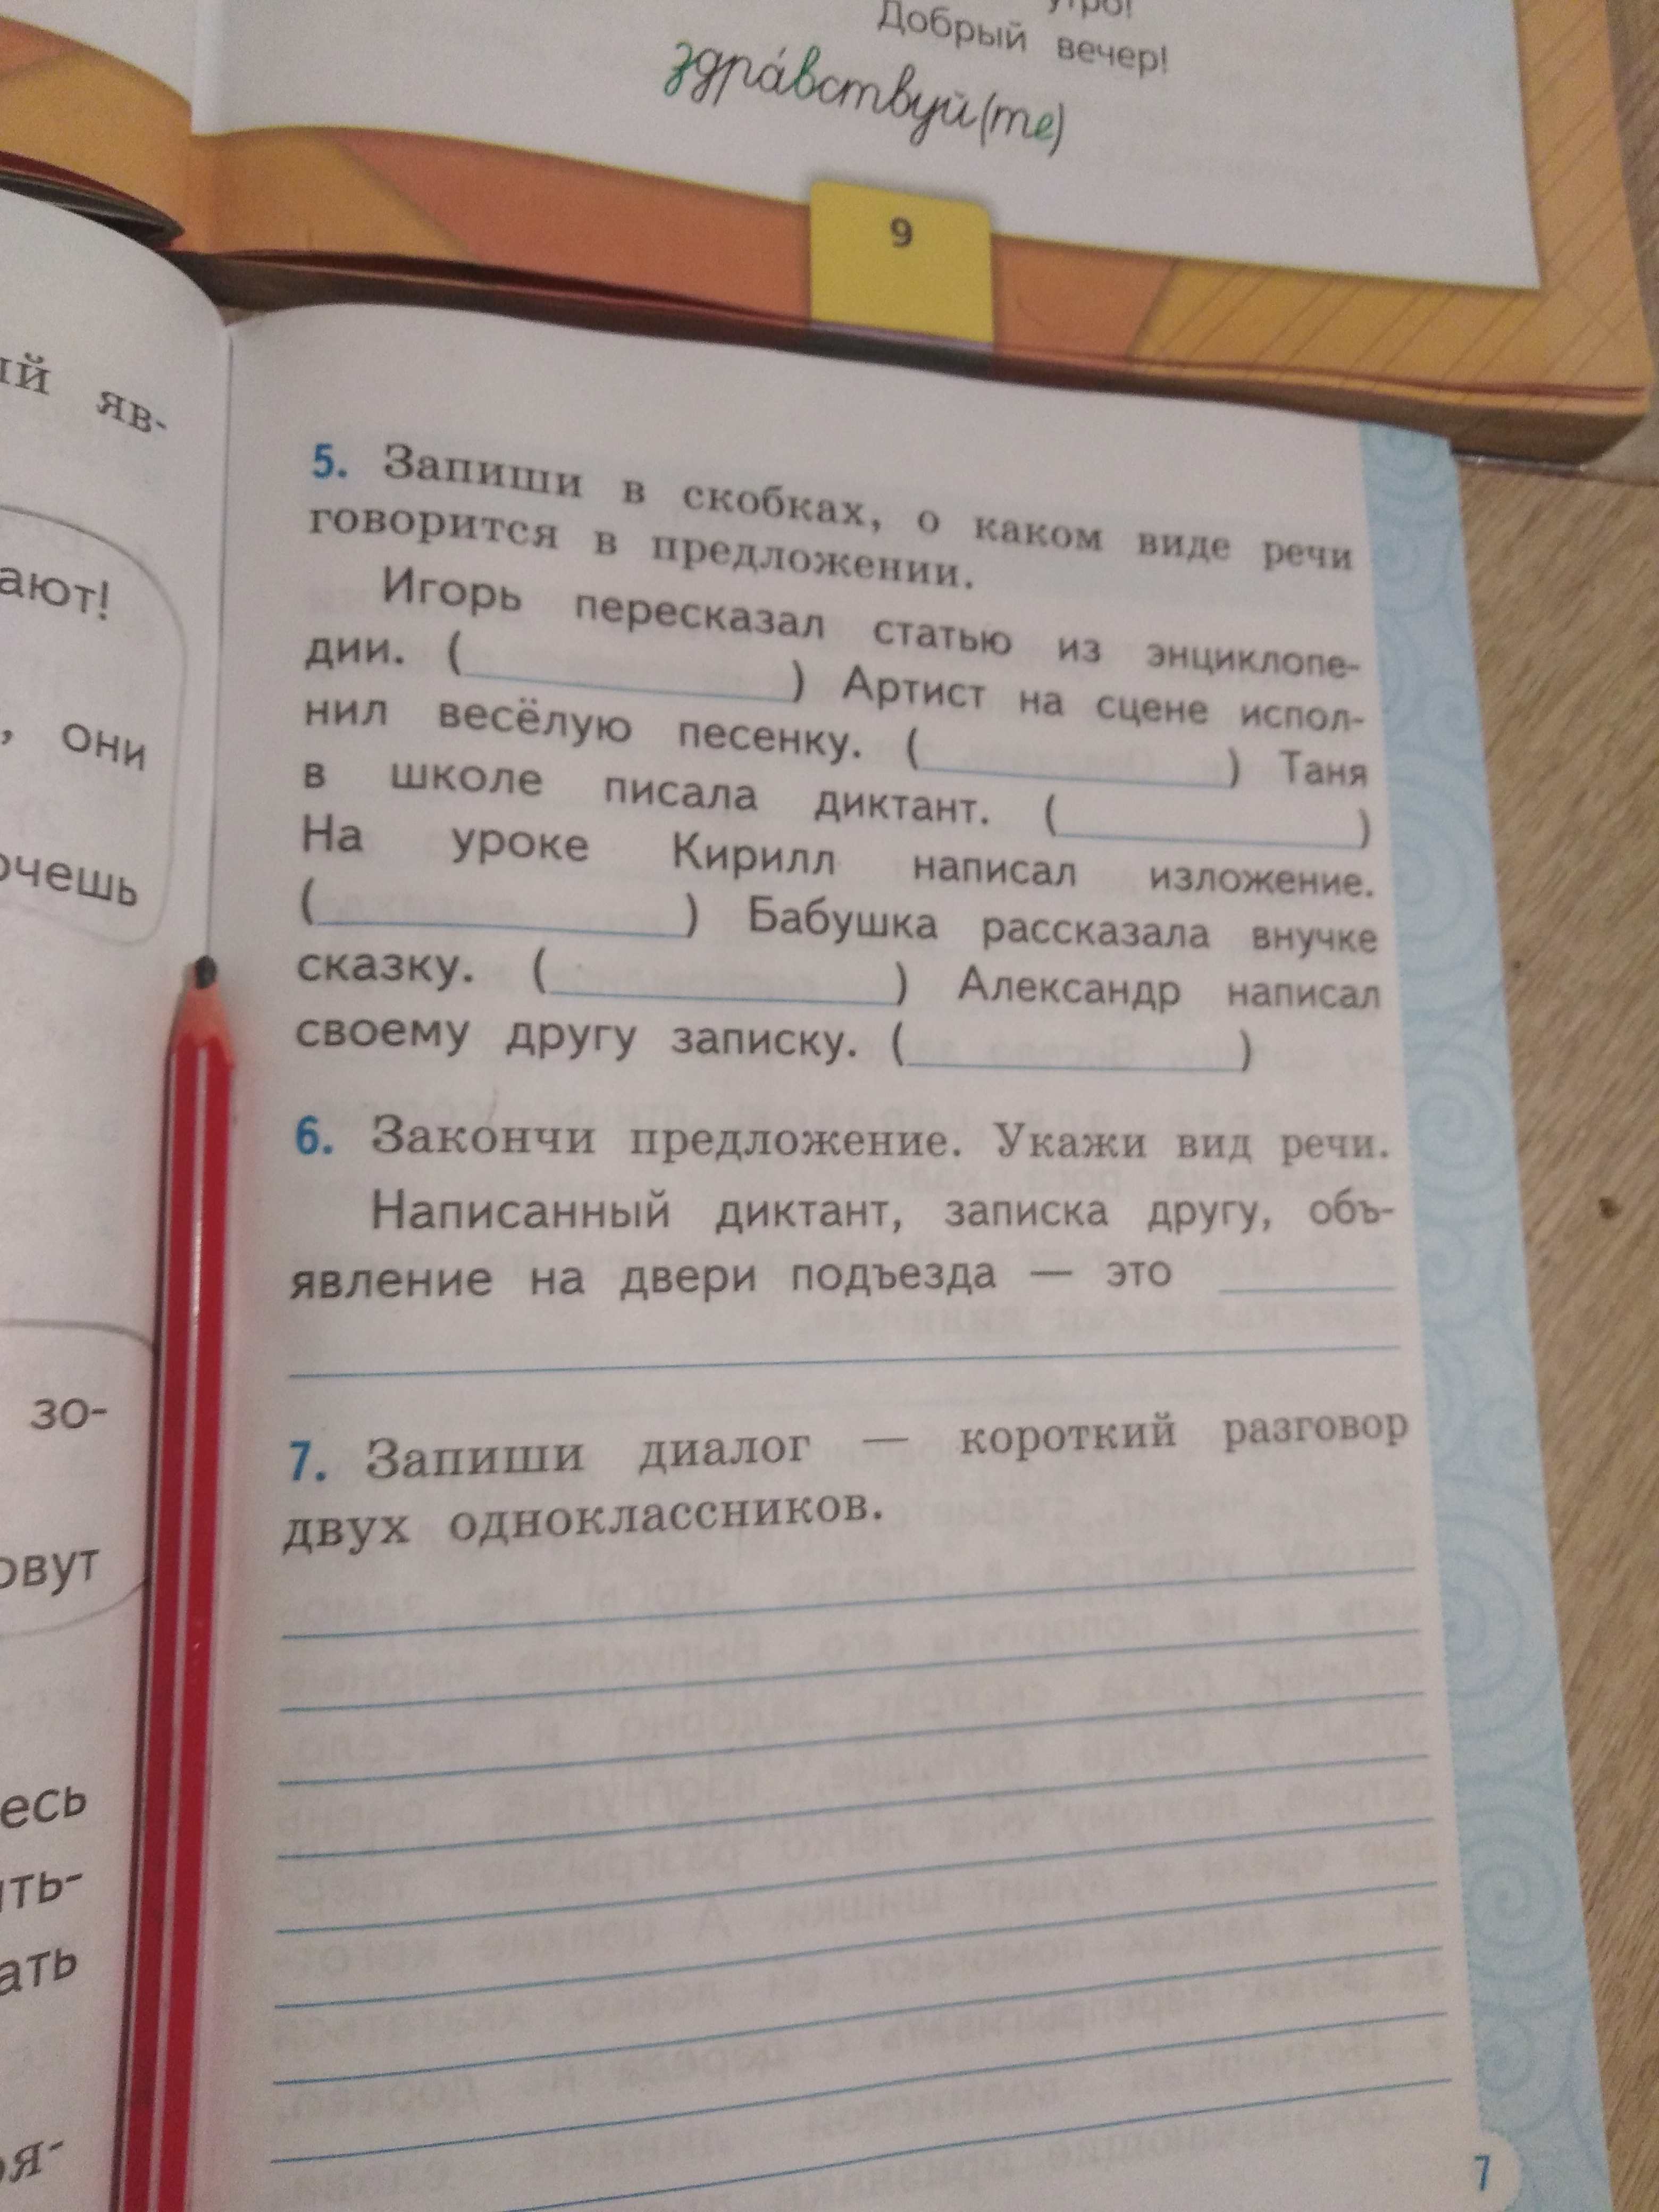 Добрый вечер!
здра́вствуй(те)
9
яв-
они
зо-
5. Запиши в скобках, о каком виде речи
говорится в предложении.
Игорь пересказал статью из энциклопе-
дии. (____________) Артист на сцене испол-
нил весёлую песенку. (____________) Таня
в школе писала диктант. (____________)
На уроке Кирилл написал изложение.
(____________) Бабушка рассказала внучке
сказку. (____________) Александр написал
своему другу записку. (____________)
6. Закончи предложение. Укажи вид речи.
Написанный диктант, записка другу, объ-
явление на двери подъезда — это ______
7. Запиши диалог — короткий разговор
двух одноклассников.
7